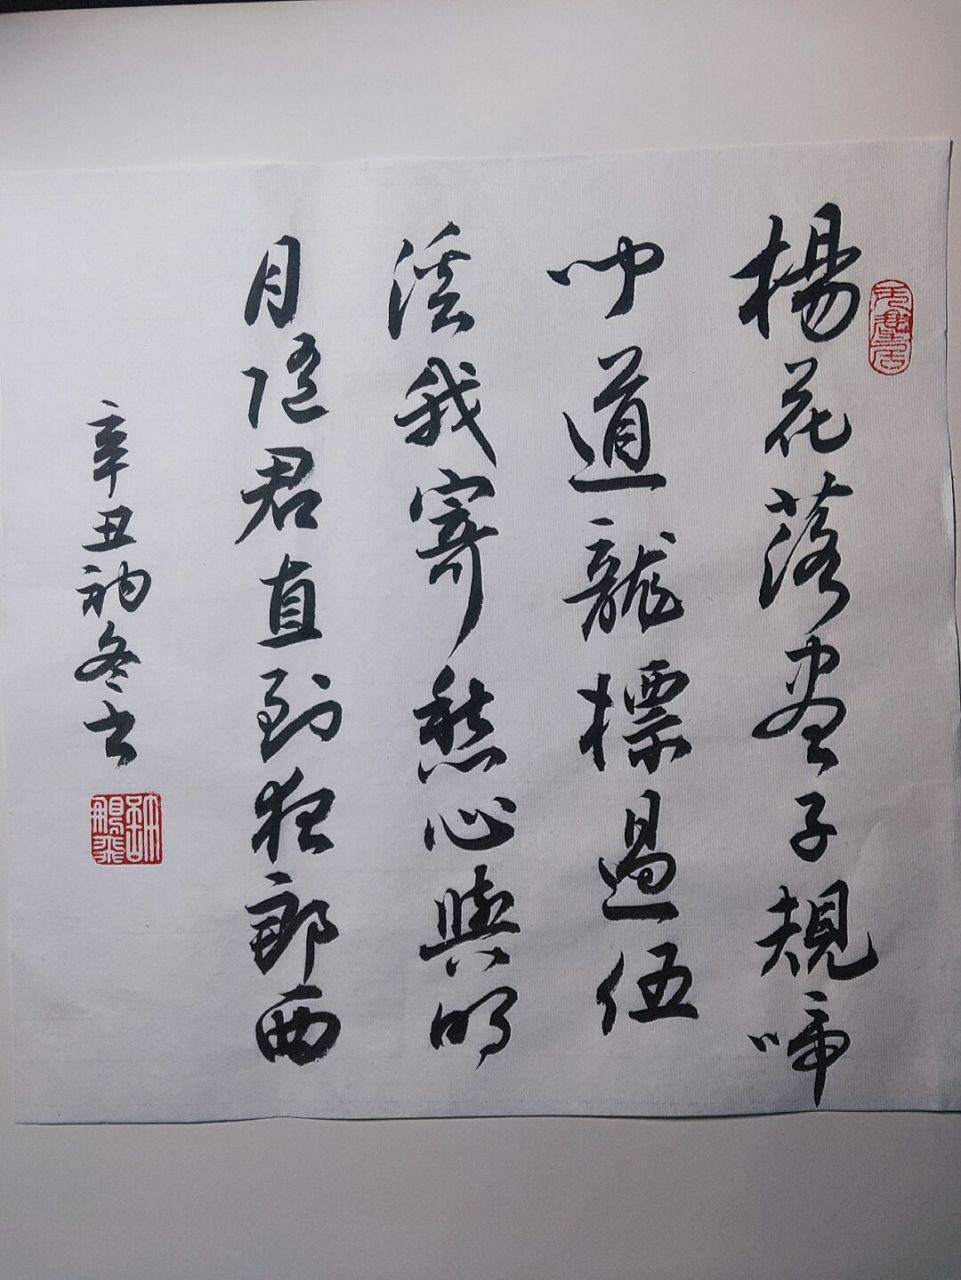 楊花落盡子規啼
聞道龍標過伍
溪我寄愁心與明
月随君直到夜郎西
辛丑初冬书